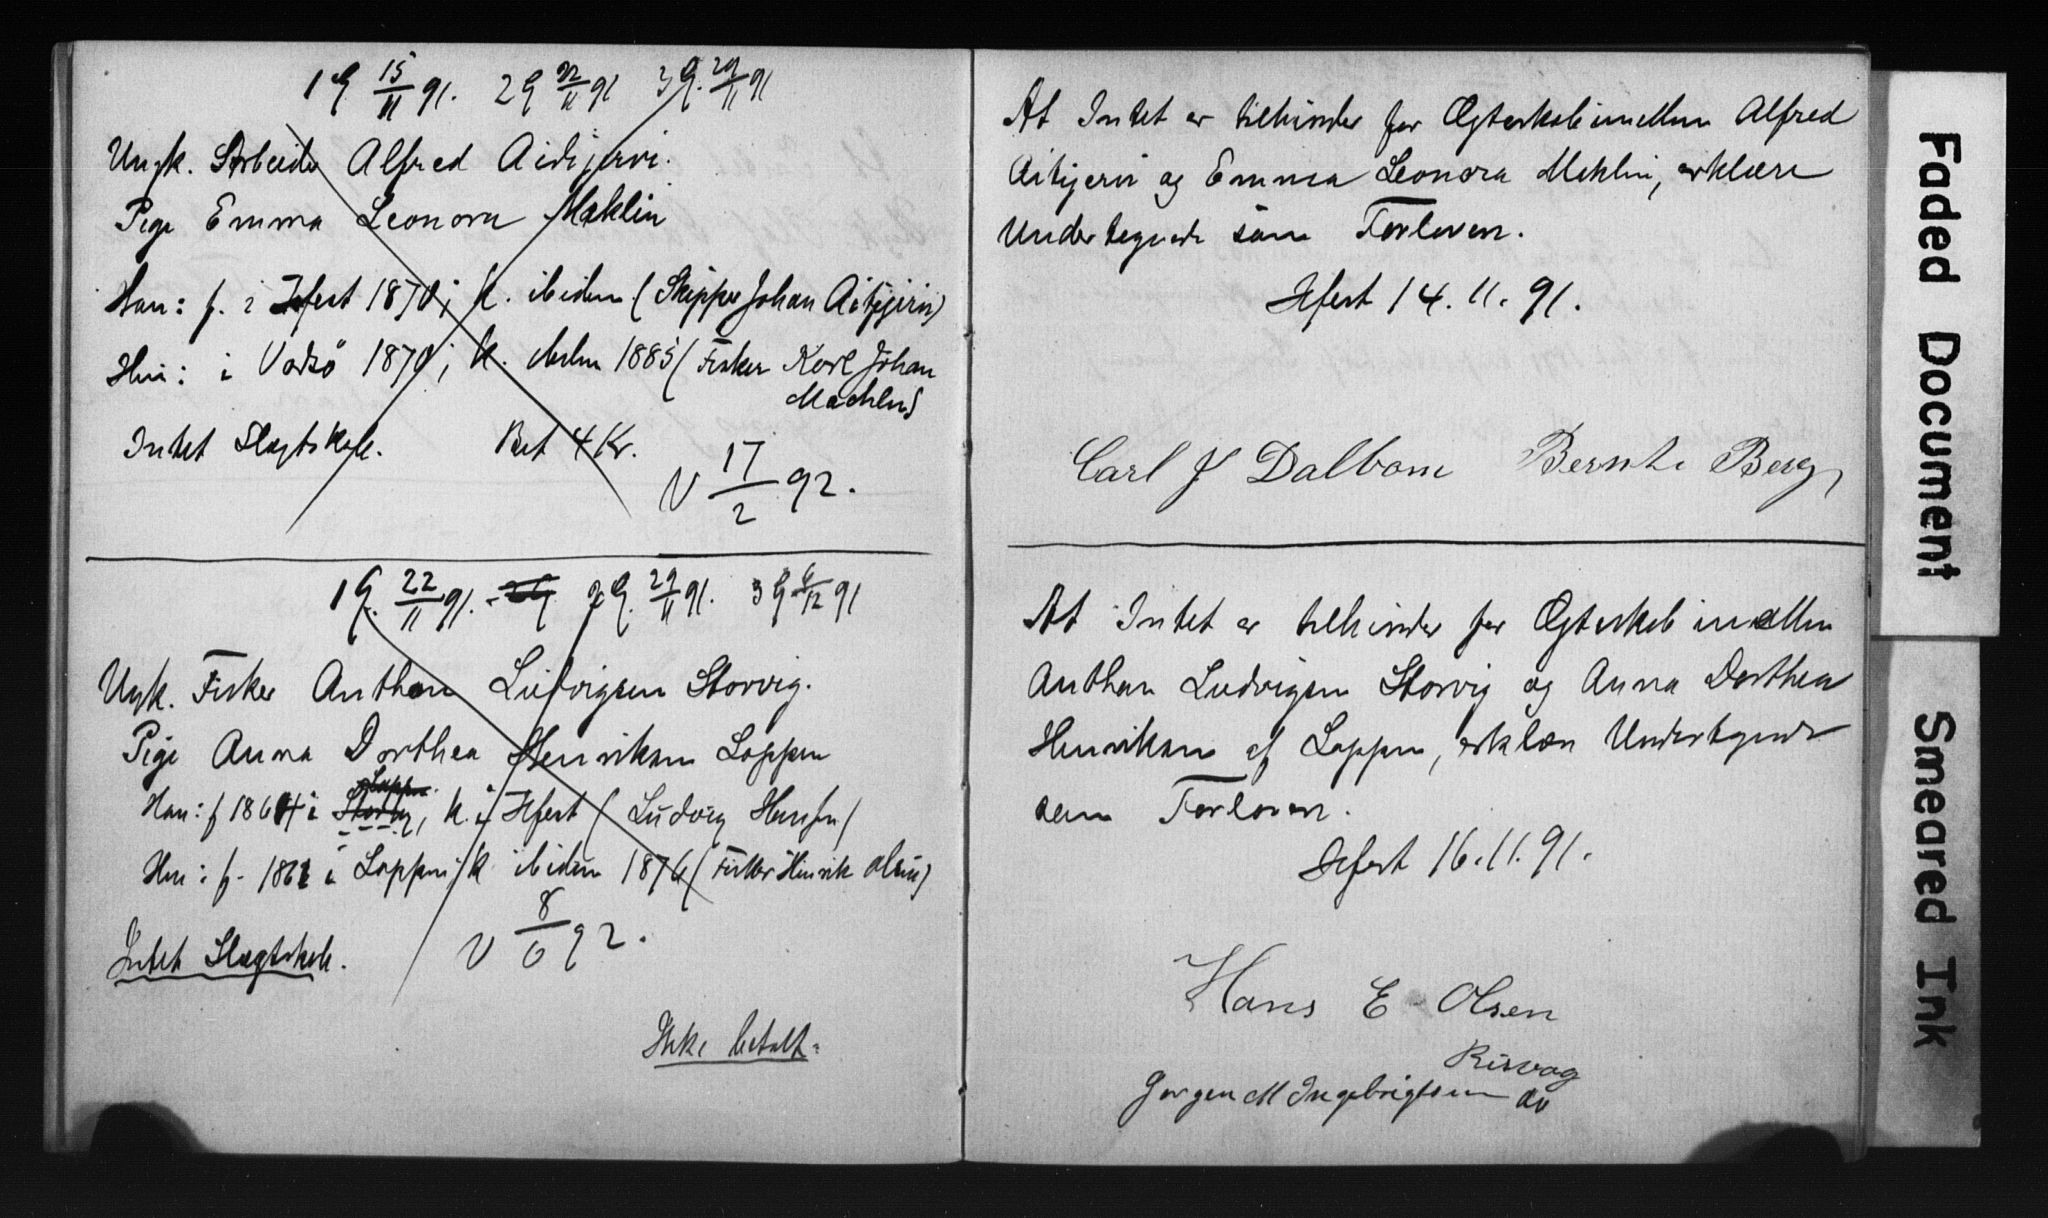 1 G. 15/11 91. 2 G 22/11 91 3 G. 29/11 91
Ungk. Arbeider Alfred Aidijervi.
Pige Emma Leonora Maklin
Han: f. i Hfest 1870; k. ibidem (Skipper Johan Aitijervi)
Hun: i Vadsö 1870; k. 1885 (Fisker Karl Johan
Intet Slægtskab. Bet 4 Kr.
V 17/2 92.
1 G. 22/11 91. 2 G 2 G. 29/11 91. 3 G 6/12 91
Ungk. Fisker Anthon Ludvigsen Storvig.
Pige Anna Dorthea Henriksen Loppen
Han: f 1864 i k. i Hfest (Ludvig Hansen)
Hun: f. i Loppen, k ibidem 1876 (Fisker Hinrik Olsen)
Intet Slægtskab.
V 8/6 92.
Ikke betalt.
At Intet er tilhinder for Ægteskab imellem Alfred
Aitijervi og Emma Leonora Meklin, erklære
Undertegnede som Forlovere.
Hfest 14. 11. 91.
Carl J Dalbom Bernt Berg
At Intet er tilhinder for Ægteskab imellem
Anthon Ludvigsen Storvig og Anna Dorthea
Henriksen af Loppen, erklære Undertegnede
som Forlovere.
Hfest 16. 11. 91.
Hans E Olsen
Risvag
Jørgen M Ingebrigtsen av
Faded Document
Smeared Ink